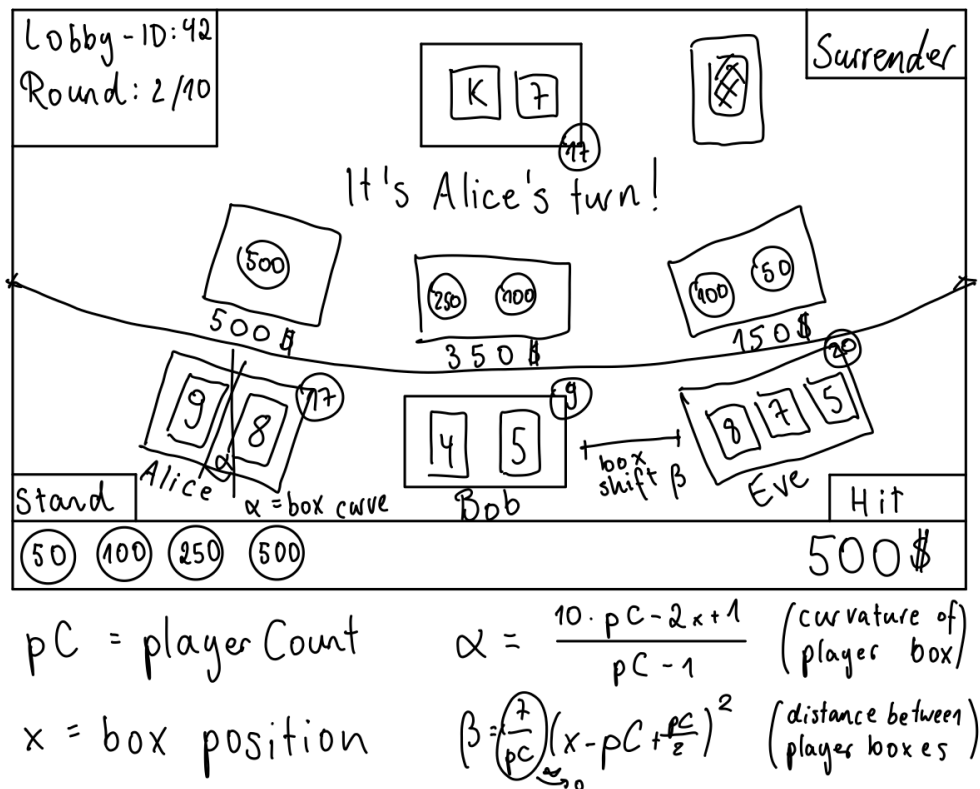 Lobby-ID:42
Round: 2/10
Surrender
K 7
17
It's Alice's turn!
500
500$
250 100
350$
100 50
150$
9 8
17
α
Alice
α = box curve
4 5
9
Bob
box
shift β
8 7 5
20
Eve
Stand
Hit
50 100 250 500
500$
pC = player Count
α = (10· pC - 2x + 1) / (pC - 1)
(curvature of
player box)
x = box position
β = 7/pC (x - pC + pC/2)²
(distance between
player boxes)